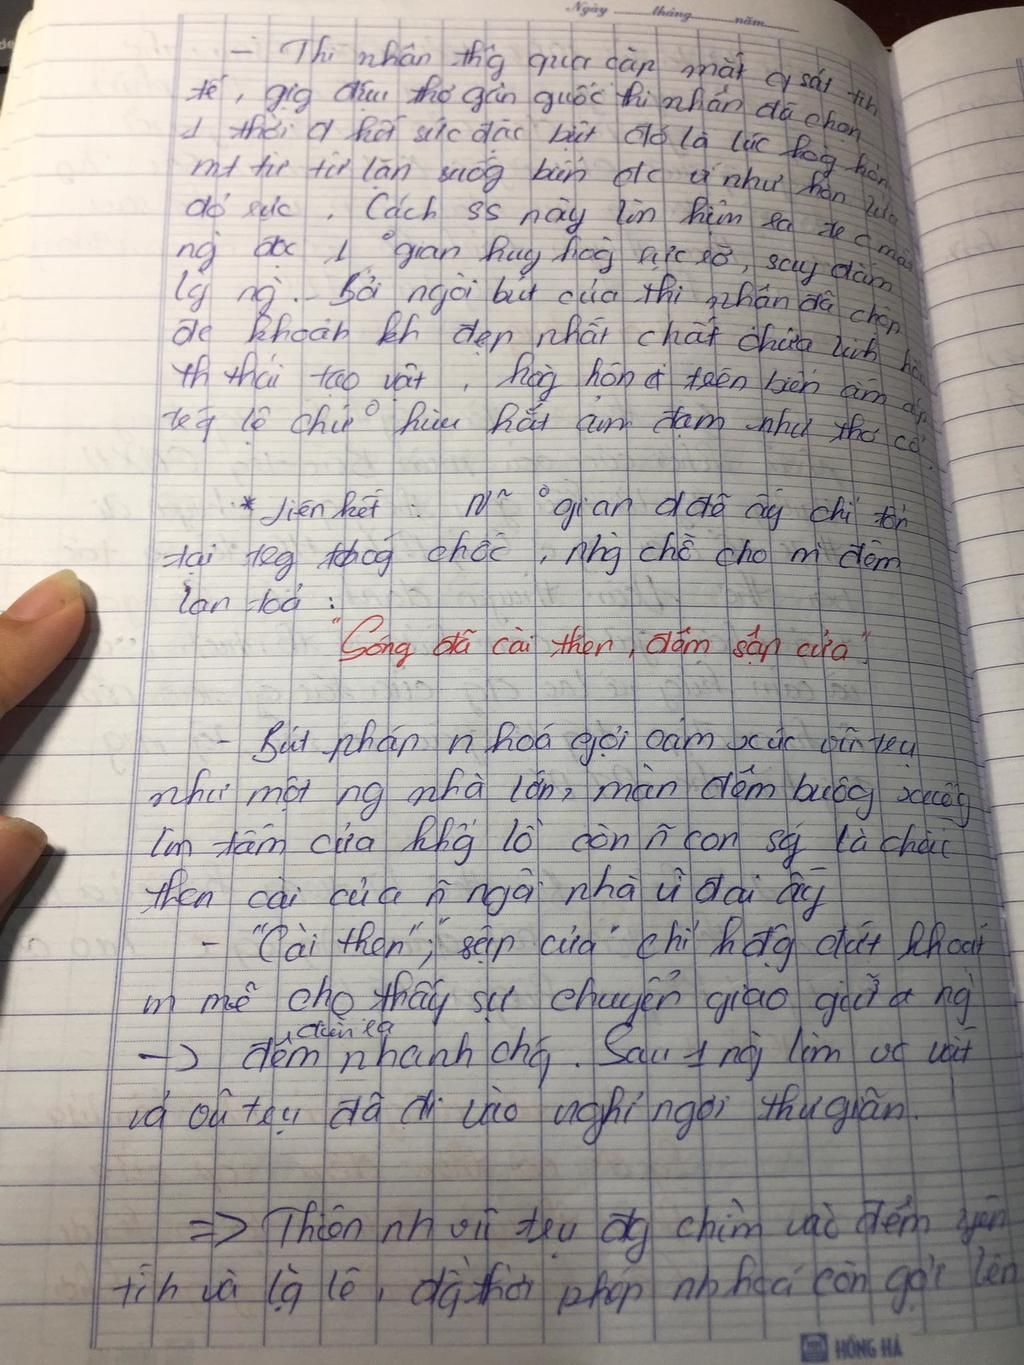 Ngày tháng năm
- Thi nhân thg qua cặp mắt q sát tih
tế, gig điệu thơ gần guốc thi nhân đã chọn
1 thời đ hết sức đặc biệt đó là lúc hoàg hôn
mt từ từ lặn xuốg biển đc ví như hòn lửa
đỏ rực. Cách ss này lm hiện ra tc mắt
ng đọc 1 °gian huy hoàg rực rỡ, say đắm
lg ng. Bởi ngòi bút của thi nhân đã chọn
đc khoảh kh đẹp nhất chất chứa lih hồn
th thái tạo vật, hoàg hôn trên biển ấm áp
tág lệ chứ ° hiu hắt ảm đạm như thơ cổ.
* Liên kết: N~ °gian đ đỗ ấy chỉ tồn
tại trg thoág chốc, nhg chỗ cho m đêm
lan toả:
"Sóng đã cài then, đêm sập cửa"
- Bút pháp n hoá gợi cảm xúc vũ trụ
như một ng nhà lớn, màn đêm buôg xuốg
lm tấm cửa khổg lồ còn ~ con sóg là chiếc
then cài của ~ ngôi nhà vĩ đại ấy
- "Cài then"; "sập cửa" chỉ hđộg dứt khoát
m mẽ cho thấy sự chuyển giao giữa ng
diễn ra
-> đêm nhanh chóg. Sau 1 ngày làm vc vất
vả vũ trụ đã đi vào nghỉ ngơi thư giãn.
=> Thiên nh vũ trụ đg chìm vào đêm yên
tĩh và lặg lẽ, đồg thời phép nh hoá còn gợi lên
HỒNG HÀ